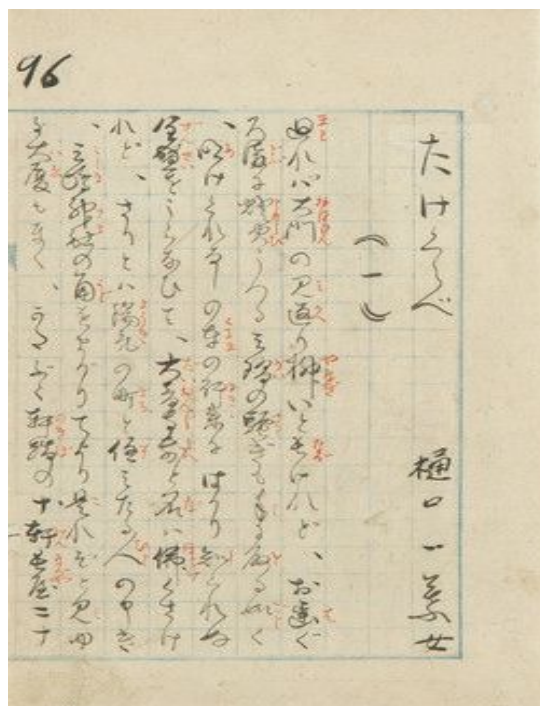 96
たけくらべ　樋口一葉女
（一）
廻れバ大門の見返り柳いと長けれど、お歯ぐ
ろ溝に燈火うつる三階の騒ぎも手に取る如く
、明けくれなしの車の行来にはかり知られぬ
全盛をうらなひて、大音寺前と名ハ佛くさけ
れど、さりとハ陽気の町と住みたる人の申き
、三嶋神社の角をまがりてより是れぞと見ゆ
る大厦もなく、かたぶく軒端の十軒長屋二十